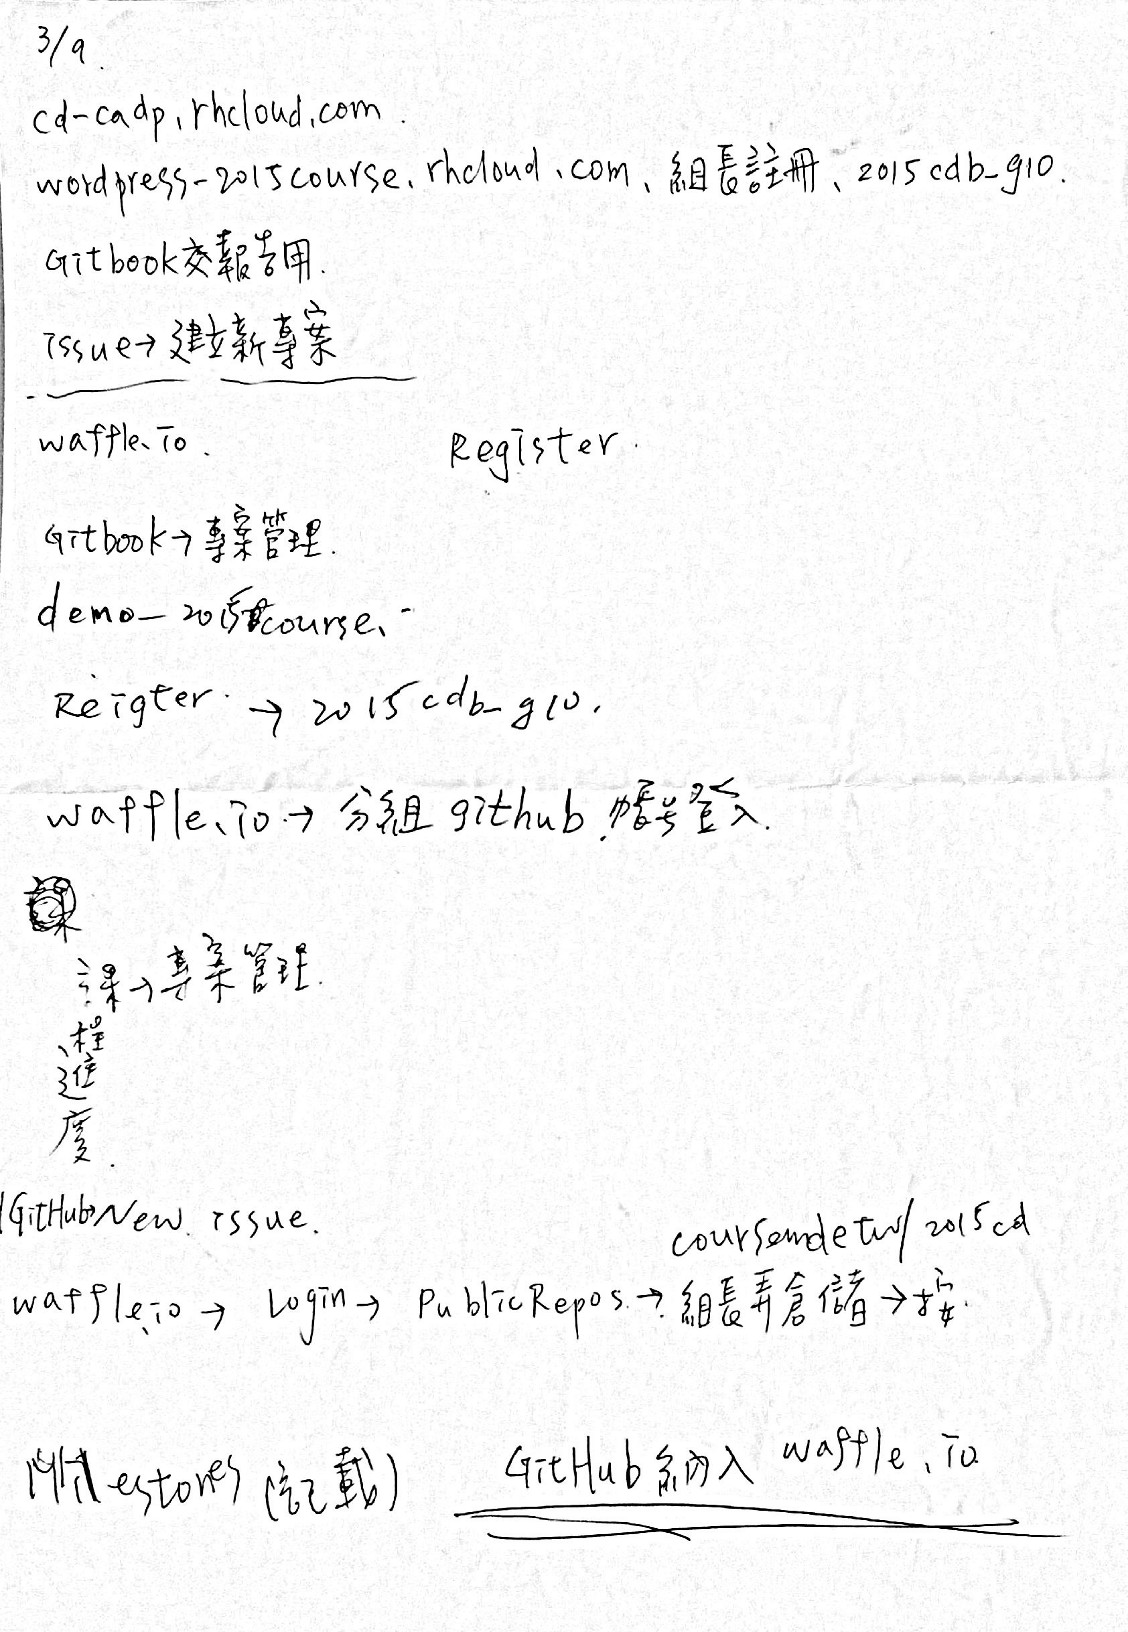 3/9.
cd-cadp.rhcloud.com.
wordpress-2015course.rhcloud.com、組長註冊、2015cdb_g10.
Gitbook交報告用.
issue→建立新專案
waffle.io. Register.
Gitbook→專案管理.
demo_2015course.
Reigter→2015cdb_g10.
waffle.io→分組github帳號登入.
課→專案管理.
程
進
度.
GitHub→New issue.
coursemdetw/2015cd
waffle.io→Login→PublicRepos.→組長弄倉儲→按.
Milestones(記載) GitHub納入 waffle.io